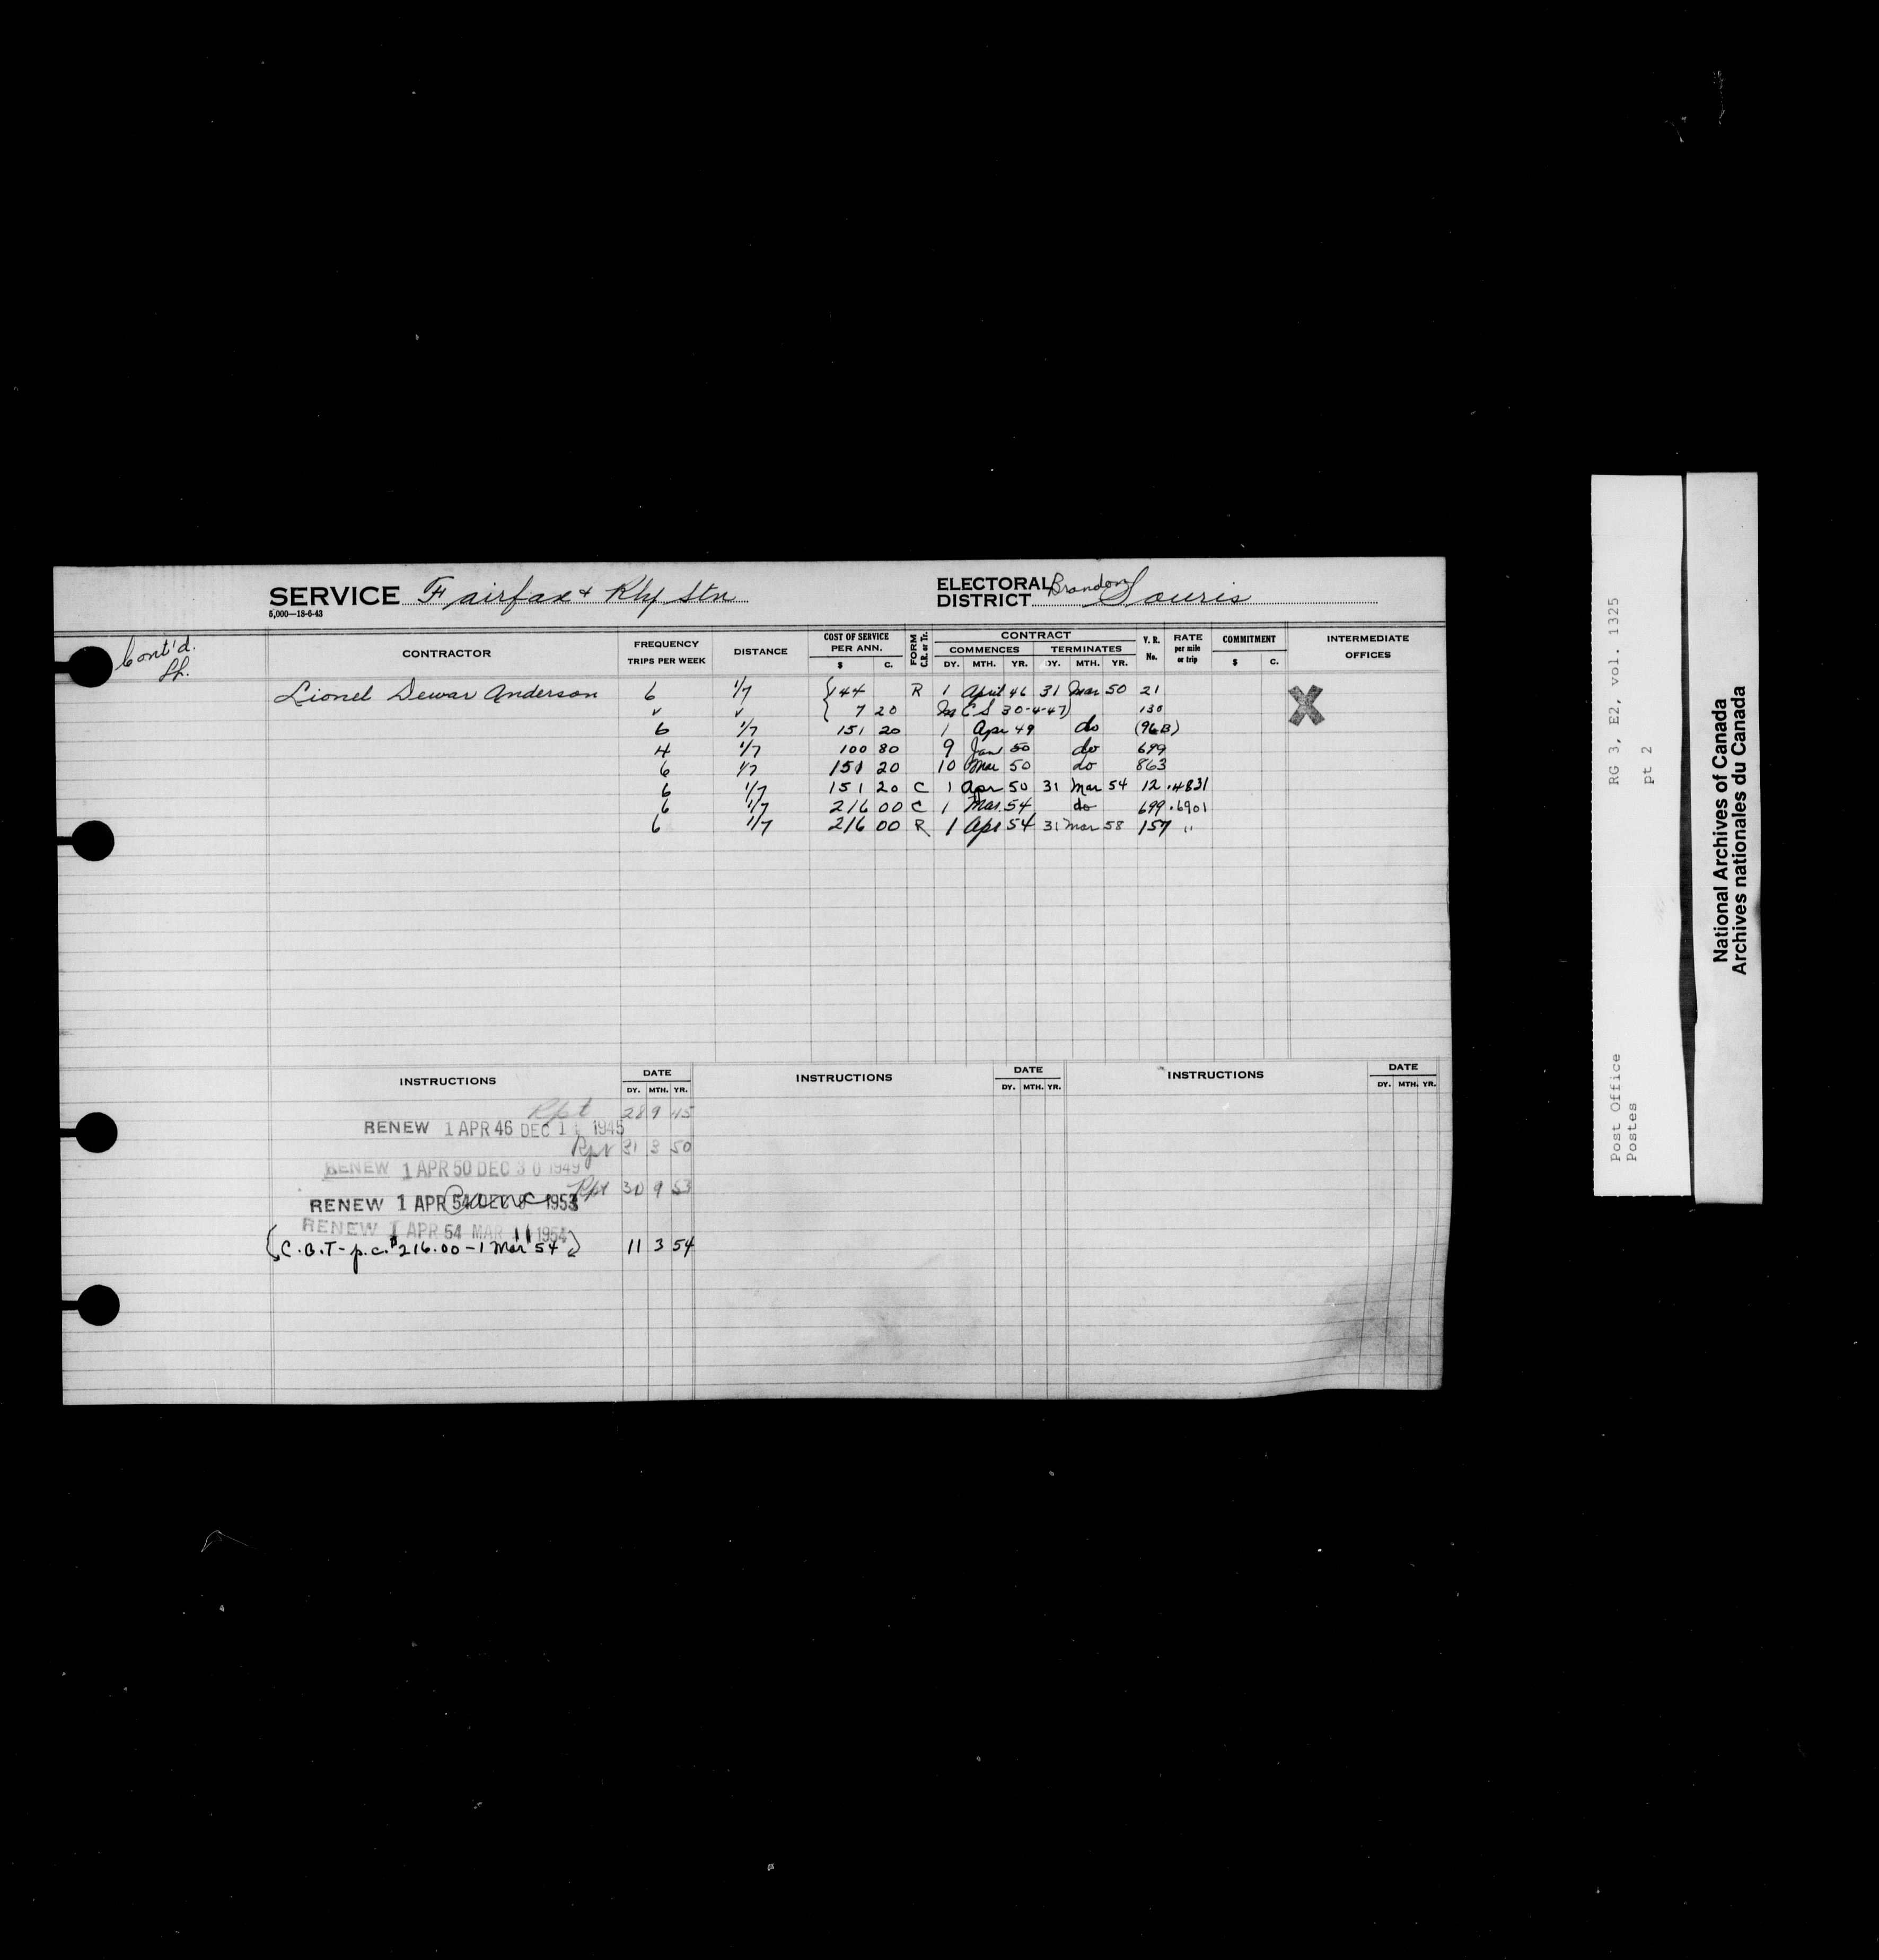 SERVICE Fairfax & Rly Stn
5,000—18-6-43
ELECTORAL DISTRICT Brandon Souris
Cont'd.
CONTRACTOR FREQUENCY TRIPS PER WEEK DISTANCE COST OF SERVICE PER ANN. $ C. FORM C.R. or Tr. CONTRACT COMMENCES DY. MTH. YR. TERMINATES DY. MTH. YR. V. R. No. RATE per mile or trip COMMITMENT $ C. INTERMEDIATE OFFICES
Lionel Dewar Anderson 6 1/7 {144 R 1 April 46 31 Mar 50 21 X
✓ ✓ { 7 20 (C S 30-4-47) 130
6 1/7 151 20 1 Apr 49 do (96B)
4 1/7 100 80 9 Jan 50 do 699
6 1/7 151 20 10 Mar 50 do 863
6 1/7 151 20 C 1 Apr 50 31 Mar 54 12 .4831
6 1/7 216 00 C 1 Mar. 54 do 699 .6901
6 1/7 216 00 R 1 Apr 54 31 Mar 58 157 "
INSTRUCTIONS DATE DY. MTH. YR. INSTRUCTIONS DATE DY. MTH. YR. INSTRUCTIONS DATE DY. MTH. YR.
Rpt 28 9 45
RENEW 1 APR 46 DEC 1 1945
Rpt 31 3 50
RENEW 1 APR 50 DEC 30 1949
Rpt 30 9 53
RENEW 1 APR 54 DEC 8 1953 Canc
RENEW 1 APR 54 MAR 11 1954
(C.B.T- p.c. $216.00 - 1 Mar 54) 11 3 54
RG 3, E2, vol. 1325
pt 2
Post Office
Postes
National Archives of Canada
Archives nationales du Canada